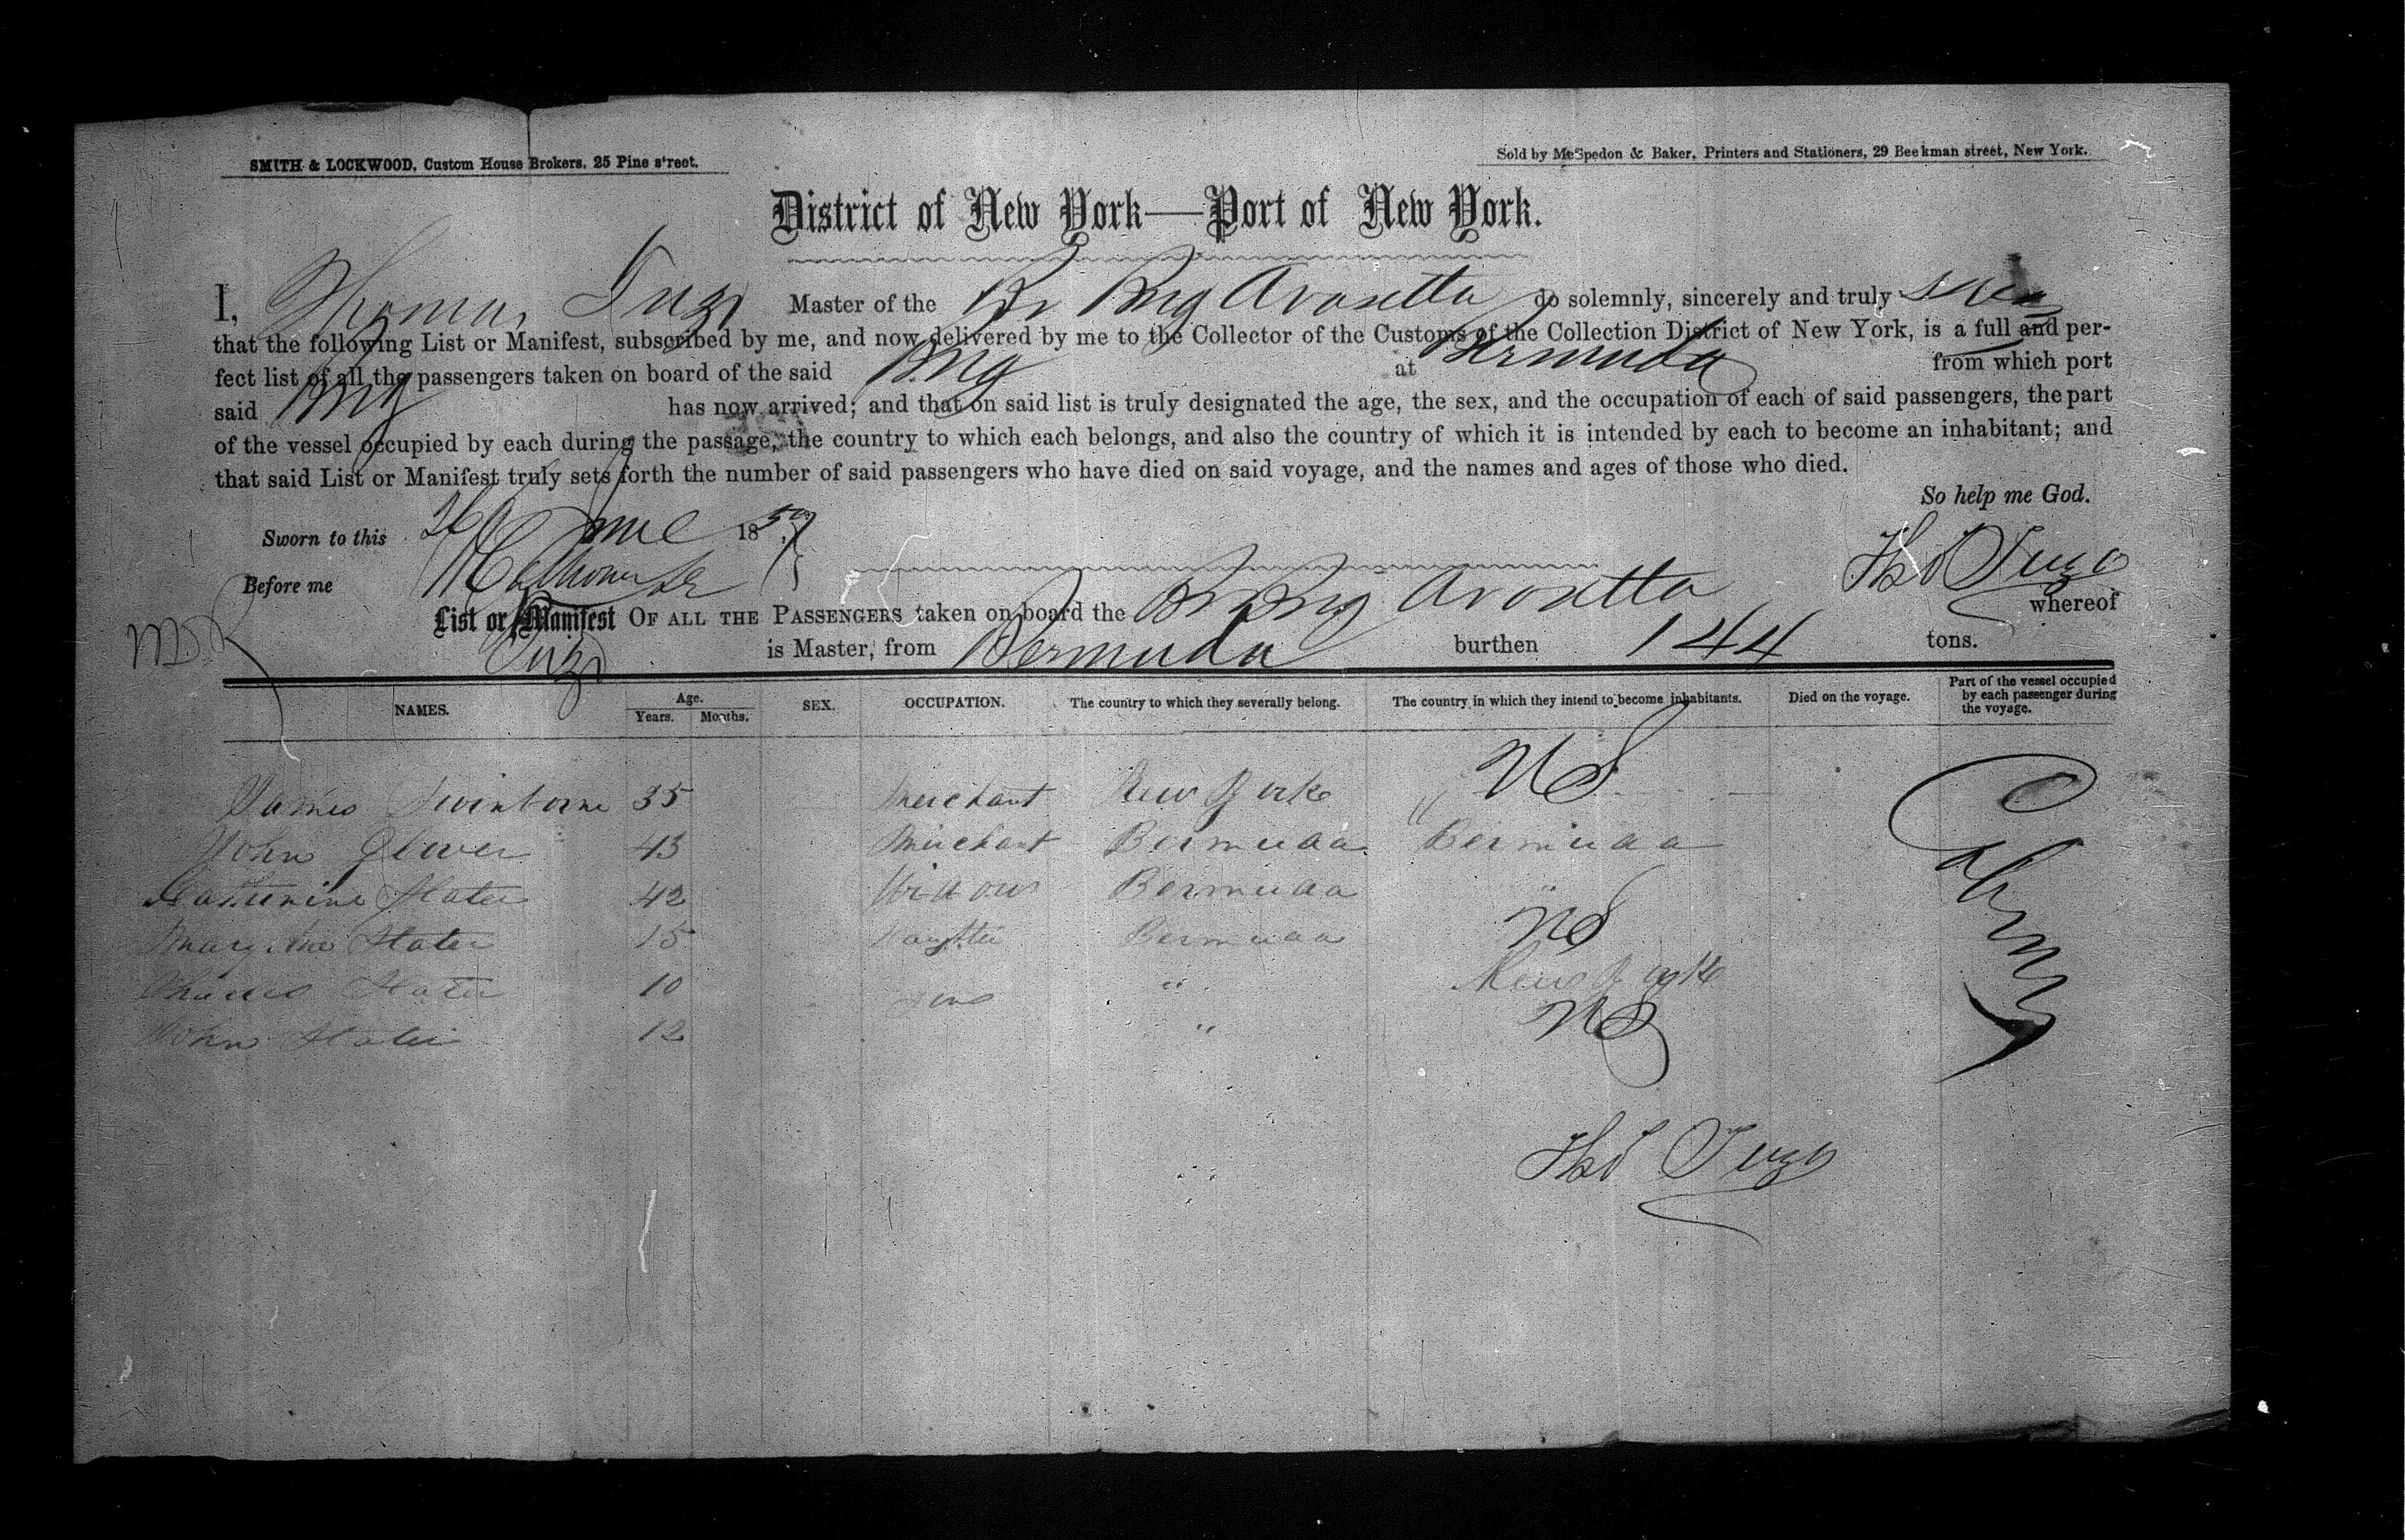 SMITH & LOCKWOOD, Custom House Brokers, 25 Pine street.
Sold by McSpedon & Baker, Printers and Stationers, 29 Beekman street, New York.
District of New York—Port of New York.
I, Thomas Tuzo Master of the Br Brig Avosetta do solemnly, sincerely and truly swear
that the following List or Manifest, subscribed by me, and now delivered by me to the Collector of the Customs of the Collection District of New York, is a full and per-
fect list of all the passengers taken on board of the said Brig at Bermuda from which port
said Brig has now arrived; and that on said list is truly designated the age, the sex, and the occupation of each of said passengers, the part
of the vessel occupied by each during the passage, the country to which each belongs, and also the country of which it is intended by each to become an inhabitant; and
that said List or Manifest truly sets forth the number of said passengers who have died on said voyage, and the names and ages of those who died.
So help me God.
Sworn to this 26 June 185
Before me
Thos Tuzo
List or Manifest OF ALL THE PASSENGERS taken on board the Br Brig Avosetta whereof
Tuzo is Master, from Bermuda burthen 144 tons.
NAMES. Age. Years. Months. SEX. OCCUPATION. The country to which they severally belong. The country in which they intend to become inhabitants. Died on the voyage. Part of the vessel occupied by each passenger during the voyage.
James 35 Merchant New York " US
John Glover 43 Merchant Bermuda Bermuda
Catherine Slater 42 Widow Bermuda "
Mary Ann Slater 15 Daughter Bermuda US
Charles Slater 10 Sons " New York
John Slater 12 " US
Cabin
Thos Tuzo